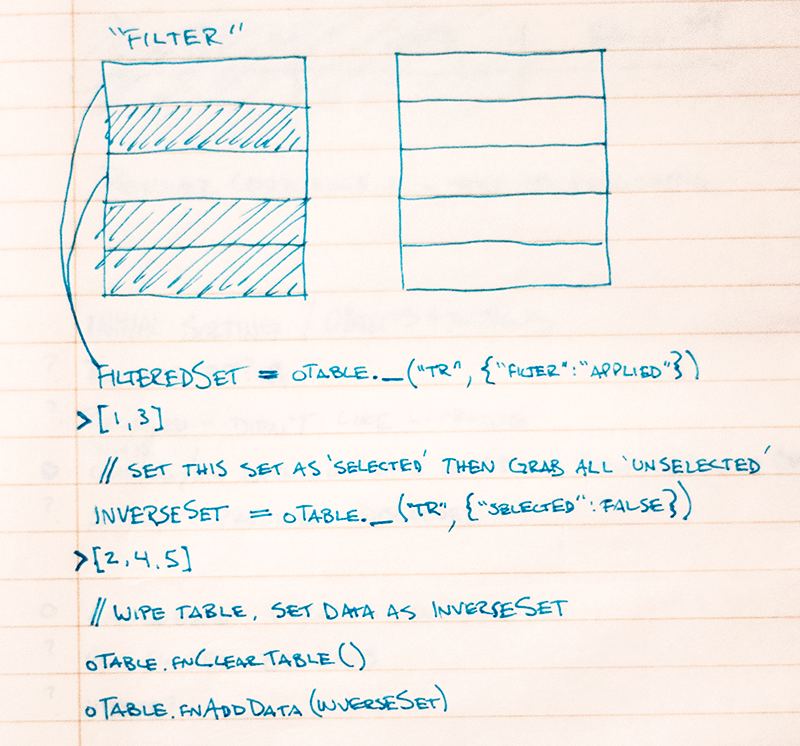 "FILTER"
FILTEREDSET = oTABLE._("TR", {"FILTER":"APPLIED"})
>[1,3]
// SET THIS SET AS 'SELECTED' THEN GRAB ALL 'UNSELECTED'
INVERSESET = oTABLE._("TR", {"SELECTED":FALSE})
>[2,4,5]
// WIPE TABLE, SET DATA AS INVERSESET
oTABLE.FNCLEARTABLE()
oTABLE.FNADDDATA(INVERSESET)